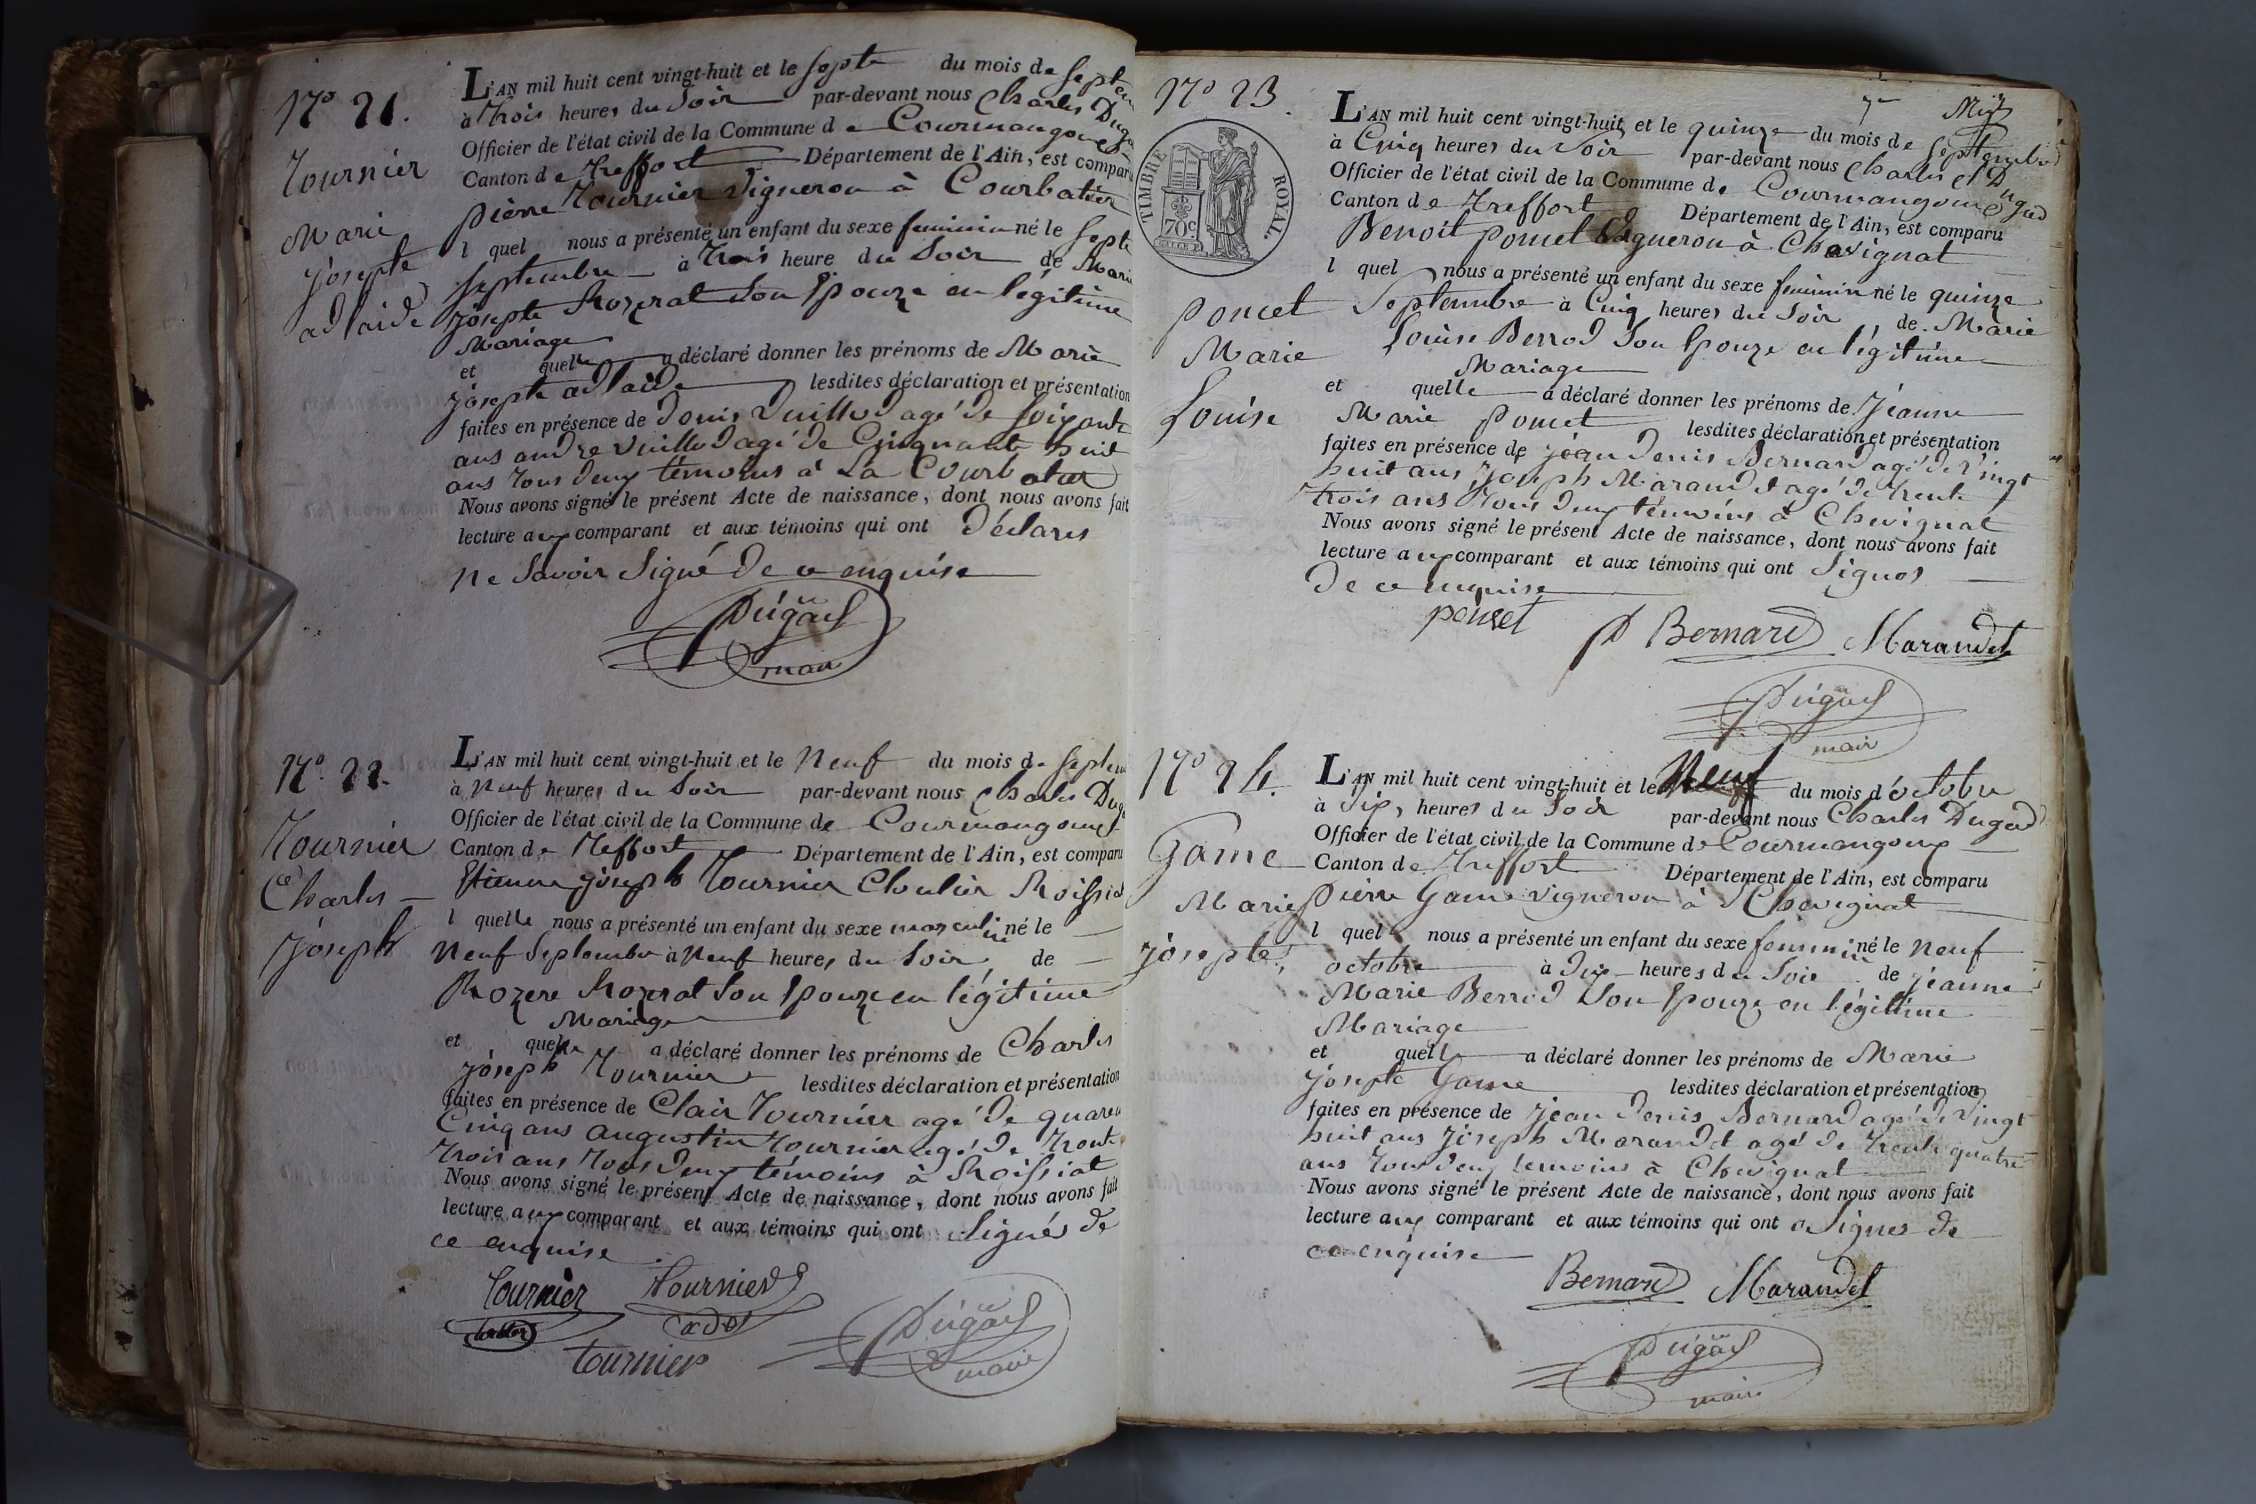 N° 21.
Tournier
Marie
josepte
adlaide
L'AN mil huit cent vingt-huit et le septe du mois de septem
à trois heures du soir par-devant nous Charles Duga
Officier de l'état civil de la Commune de Courmangoux
Canton de treffort Département de l'Ain, est comparu
pierre tournier vigneron à Courbatier
l quel nous a présenté un enfant du sexe feminin né le septe
septembre à trois heure du soir de Marie
josepte Rozerat son Epouze en legitime
Mariage
et quelle a déclaré donner les prénoms de Marie
josepte adlaide lesdites déclaration et présentation
faites en présence de Denis Vuillod agé de soixante
ans andre vuillod agé de Cinquante huit
ans tous deux témoins à La Courbatier
Nous avons signé le présent Acte de naissance, dont nous avons fait
lecture aux comparant et aux témoins qui ont déclarés
ne savoir signé de ce enquise
Dugad
maire
N° 22.
Tournier
Charles
joseph
L'AN mil huit cent vingt-huit et le Neuf du mois de septem
à Neuf heures du soir par-devant nous Charles Duga
Officier de l'état civil de la Commune de Courmangoux
Canton de Treffort Département de l'Ain, est comparu
Etienne joseph Tournier Cloutier Roissiat
l quelle nous a présenté un enfant du sexe masculin né le
Neuf septembre à Neuf heures du soir de
Rozere Rozerat son Epouze en légitime
Mariage
et quelle a déclaré donner les prénoms de Charles
joseph Tournier lesdites déclaration et présentation
faites en présence de Clair Tournier agé de quaren
Cinq ans augustin tournier agé de trente
trois ans tous deux témoins à Roissiat
Nous avons signé le présent Acte de naissance, dont nous avons fait
lecture aux comparant et aux témoins qui ont signés de
ce enquise
tournier Tournier
tournier
Dugad
maire
N° 23.
TIMBRE ROYAL.
70c
poncet
Marie
Louise
L'AN mil huit cent vingt-huit et le quinze du mois de septembre
à Cinq heures du soir par-devant nous Charles Dugad
Officier de l'état civil de la Commune de Courmangoux
Canton de treffort Département de l'Ain, est comparu
Benoit poncet Vigneron à Chevignat
l quel nous a présenté un enfant du sexe feminin né le quinze
septembre à Cinq heures du soir, de Marie
Louise Berrod son Epouze en légitime
Mariage
et quelle a déclaré donner les prénoms de jeanne
Marie poncet lesdites déclaration et présentation
faites en présence de jean denis Bernard agé de vingt
huit ans joseph Marandet agé de trente
trois ans tous deux témoins à Chevignat
Nous avons signé le présent Acte de naissance, dont nous avons fait
lecture aux comparant et aux témoins qui ont signés
de ce enquise
poncet D Bernard Marandet
Dugad
maire
N° 24.
Game
Marie
josepte
L'AN mil huit cent vingt-huit et le Neuf du mois d'octobre
à dix heures du soir par-devant nous Charles Dugad
Officier de l'état civil de la Commune de Courmangoux
Canton de treffort Département de l'Ain, est comparu
pierre Game vigneron à Chevignat
l quel nous a présenté un enfant du sexe feminin né le Neuf
octobre à dix heures du soir de jeanne
Marie Berrod son Epouze en légitime
Mariage
et quelle a déclaré donner les prénoms de Marie
josepte Game lesdites déclaration et présentation
faites en présence de jean denis Bernard agé de vingt
huit ans joseph Marandet agé de trente quatre
ans tous deux temoins à Chevignat
Nous avons signé le présent Acte de naissance, dont nous avons fait
lecture aux comparant et aux témoins qui ont signés de
ce enquise
Bernard Marandet
Dugad
maire